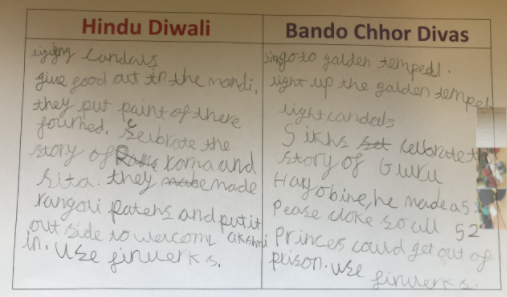 Hindu Diwali
lighting candals
give food out in the mandi,
they put paint of there
fourhed, Selbrate the
story of Rama and
sita. they made made
rangoli patens and put it
out side to welcome lakshmi
in. use firwerks.
Bando Chhor Divas
go to golden tempel.
light up the golden tempel
light candals
Sikhs celbrate the
story of Guru
Hargobine, he made a 52
Pease cloke so all 52
Princes could get out of
prison. use firwerks.